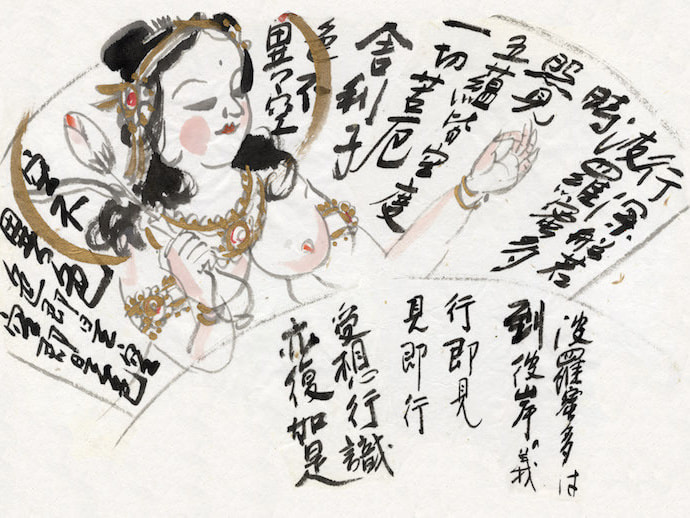 行深般若
波羅蜜多
時
照見
五蘊皆空度
一切苦厄
舍利子
色不
異空
空不
異色
色即是空
空即是色
波羅蜜多は
到彼岸の義
行即見
見即行
受想行識
亦復如是